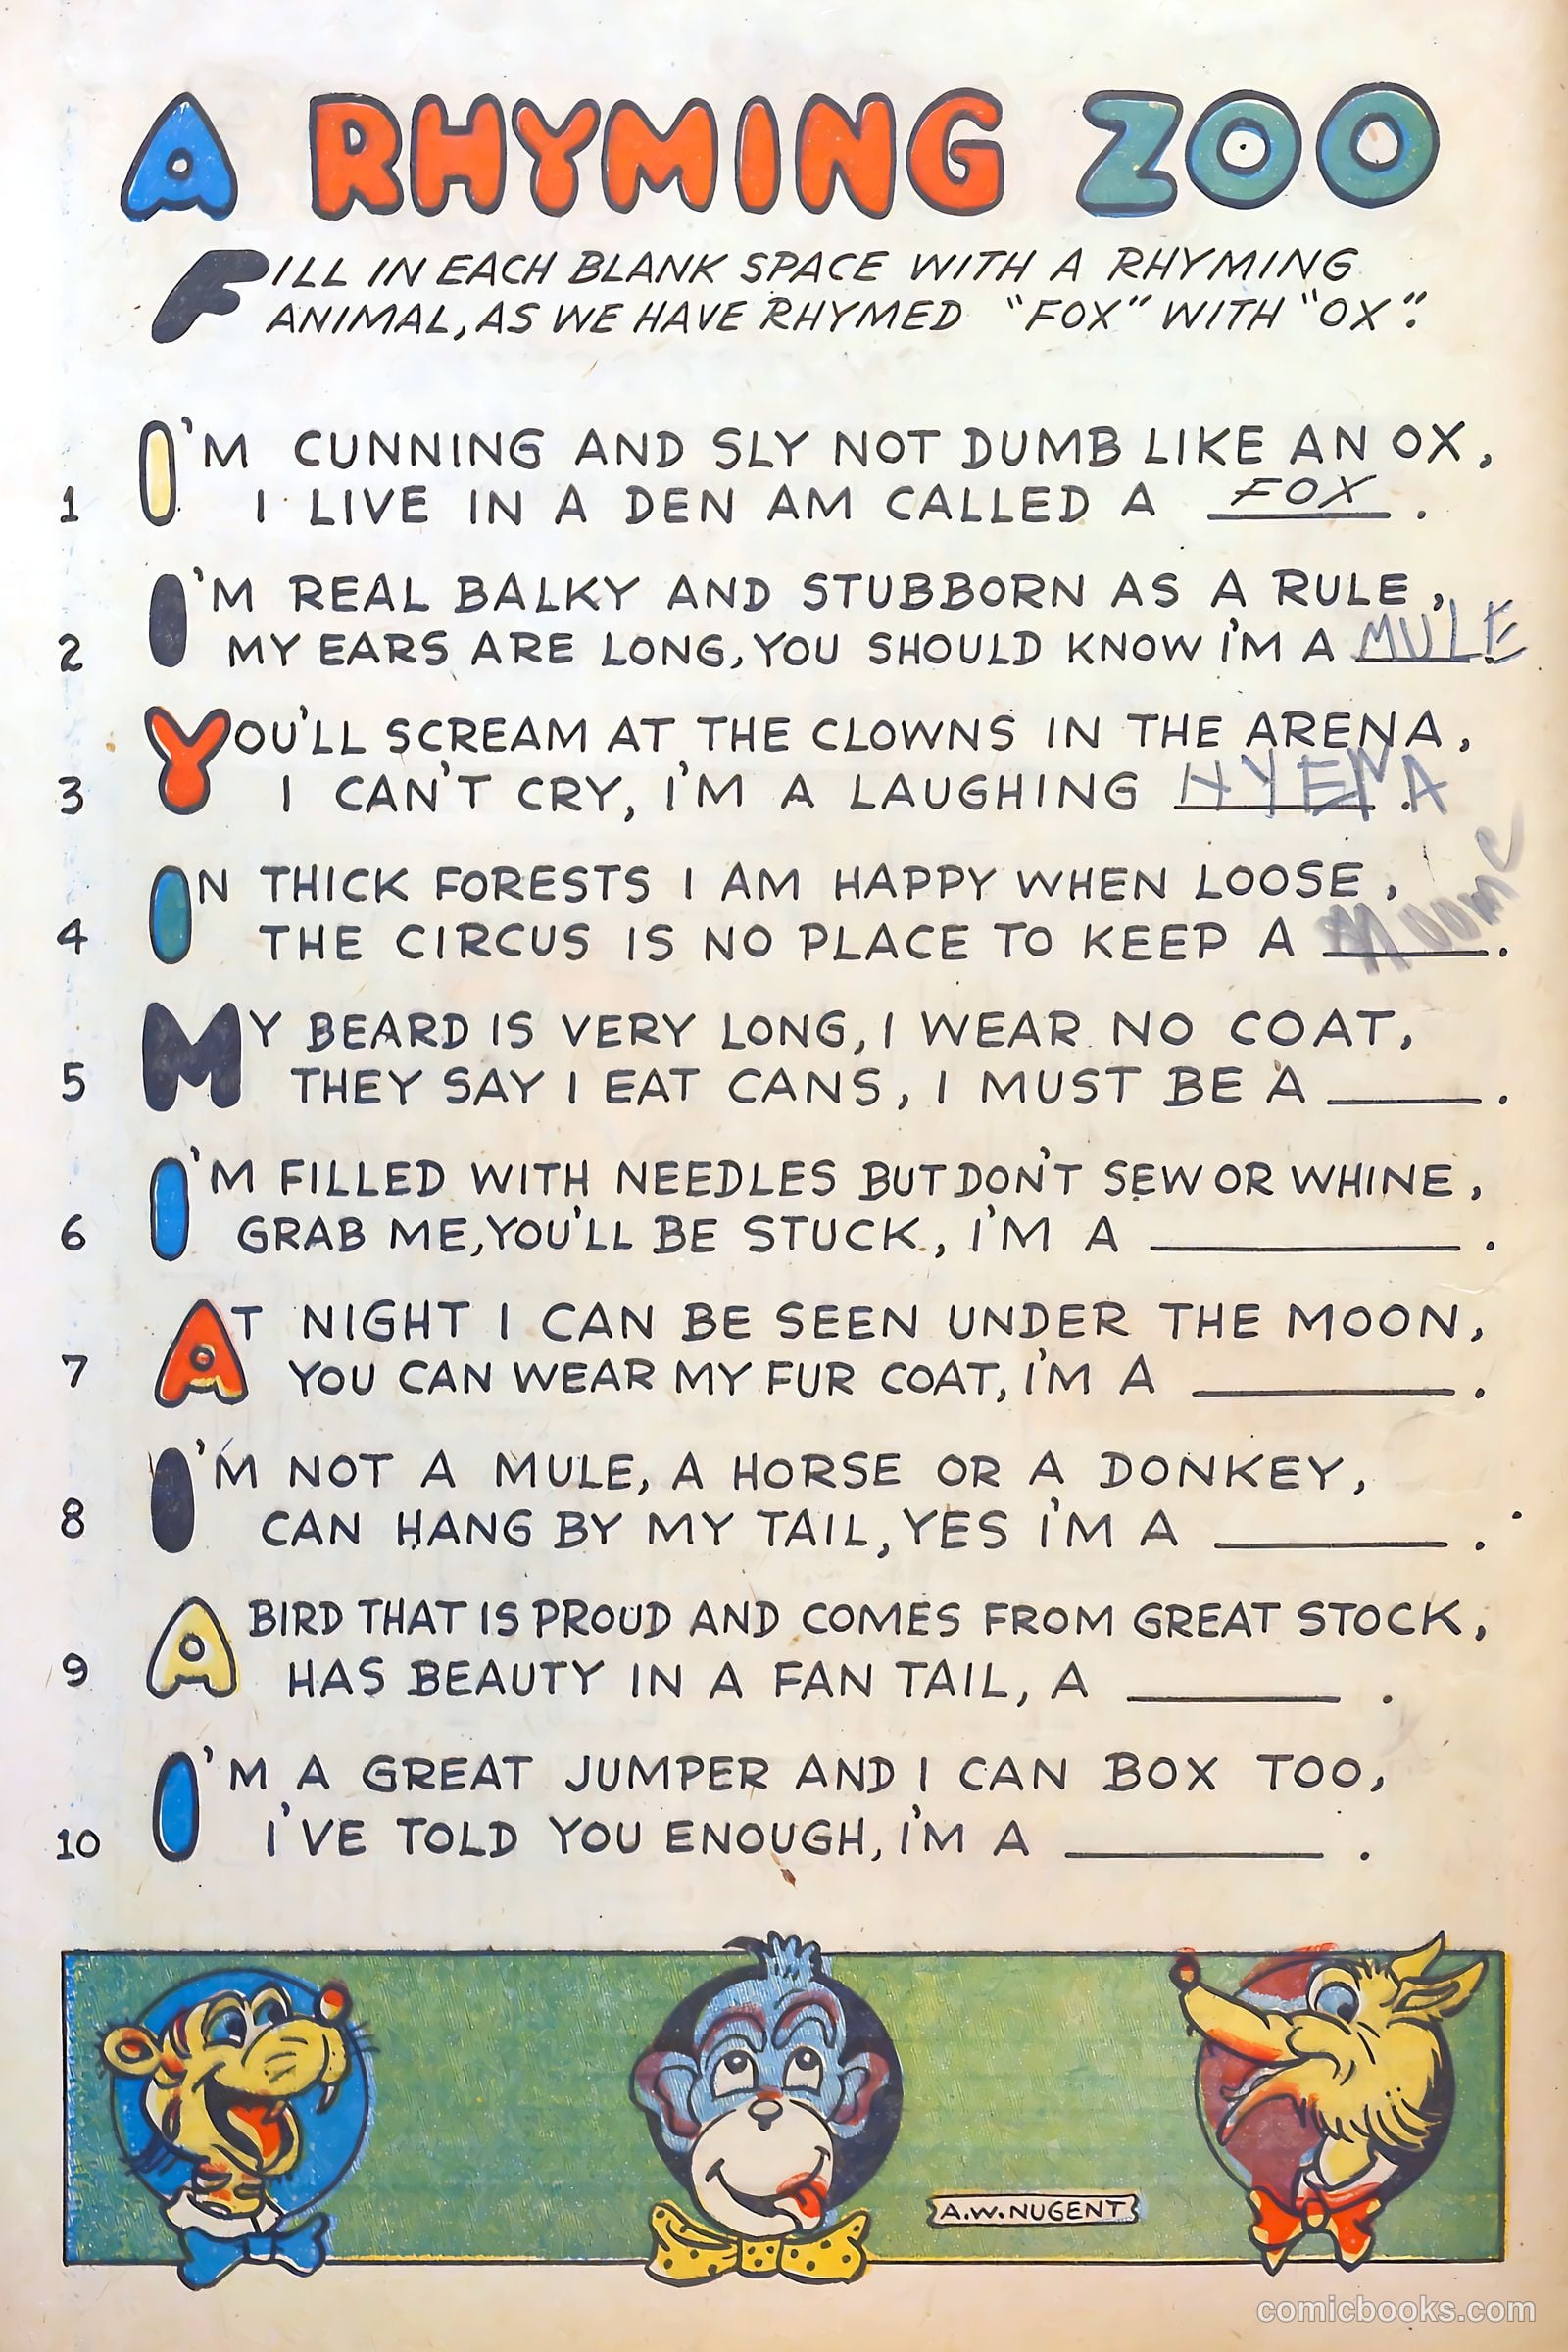 A RHYMING ZOO
FILL IN EACH BLANK SPACE WITH A RHYMING
ANIMAL, AS WE HAVE RHYMED "FOX" WITH "OX".
I'M CUNNING AND SLY NOT DUMB LIKE AN OX,
1 I LIVE IN A DEN AM CALLED A FOX.
I'M REAL BALKY AND STUBBORN AS A RULE,
2 MY EARS ARE LONG, YOU SHOULD KNOW I'M A MULE.
YOU'LL SCREAM AT THE CLOWNS IN THE ARENA,
3 I CAN'T CRY, I'M A LAUGHING HYENA.
IN THICK FORESTS I AM HAPPY WHEN LOOSE,
4 THE CIRCUS IS NO PLACE TO KEEP A ____.
MY BEARD IS VERY LONG, I WEAR NO COAT,
5 THEY SAY I EAT CANS, I MUST BE A ____.
I'M FILLED WITH NEEDLES BUT DON'T SEW OR WHINE,
6 GRAB ME, YOU'LL BE STUCK, I'M A ____.
AT NIGHT I CAN BE SEEN UNDER THE MOON,
7 YOU CAN WEAR MY FUR COAT, I'M A ____.
I'M NOT A MULE, A HORSE OR A DONKEY,
8 CAN HANG BY MY TAIL, YES I'M A ____.
A BIRD THAT IS PROUD AND COMES FROM GREAT STOCK,
9 HAS BEAUTY IN A FAN TAIL, A ____.
I'M A GREAT JUMPER AND I CAN BOX TOO,
10 I'VE TOLD YOU ENOUGH, I'M A ____.
A.W. NUGENT
comicbooks.com